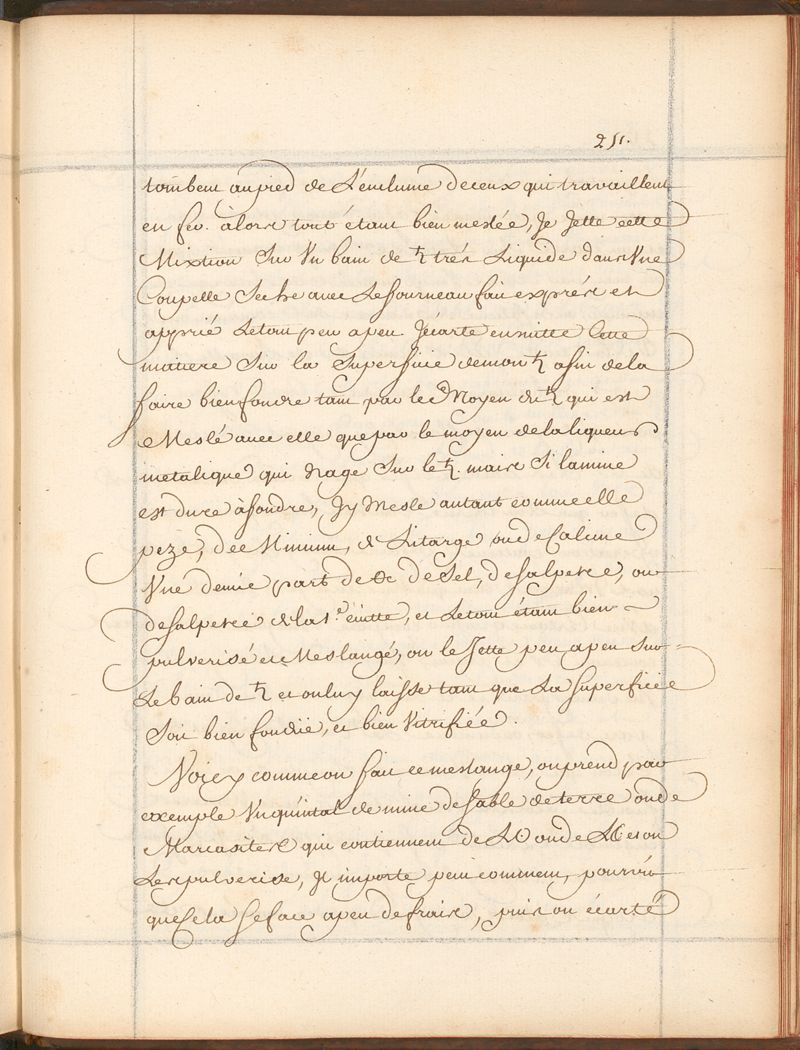 251.
tombent au pied de L'enclume de ceux qui travaillent
en fer. alors tout étant bien meslée, Je Jette cette
Mixtion Sur Un bain de ♄ trés Liquide dans Une
Coupelle Seche avec Le fourneau fait exprés et
approprié Le tout peu a peu Jécarte ensuitte Cette
matiere Sur la Superficie de mon ♄ afin de la
faire bien fondre tant par le Moyen du ♄ qui est
Meslé avec elle que par le moyen de la liqueur
metalique qui nage Sur le ♄. mais Si la mine
est dure à fondre, Jy Mesle autant comme elle
peze, de Minium, & Litarge ou de Calcine
Une demie part de de Sel, de salpetre, ou
de salpetre & la et Le tout étant bien
pulverisé et Meslangé, on le Jette peu a peu Sur
Le bain de ♄ et on luy laisse tant que La Superficie
Soit bien fondüe, et bien Vitrifiée.
Voicy comme on fait ce meslange, on prend par
exemple Un quintal de mine de sable de terre ou de
Marcasites qui contiennent de L'☉ ou de L☾ et on
Les pulverise, Il importe peu comment, pourvû
que Cela Se face a peu de frais, puis on écarte